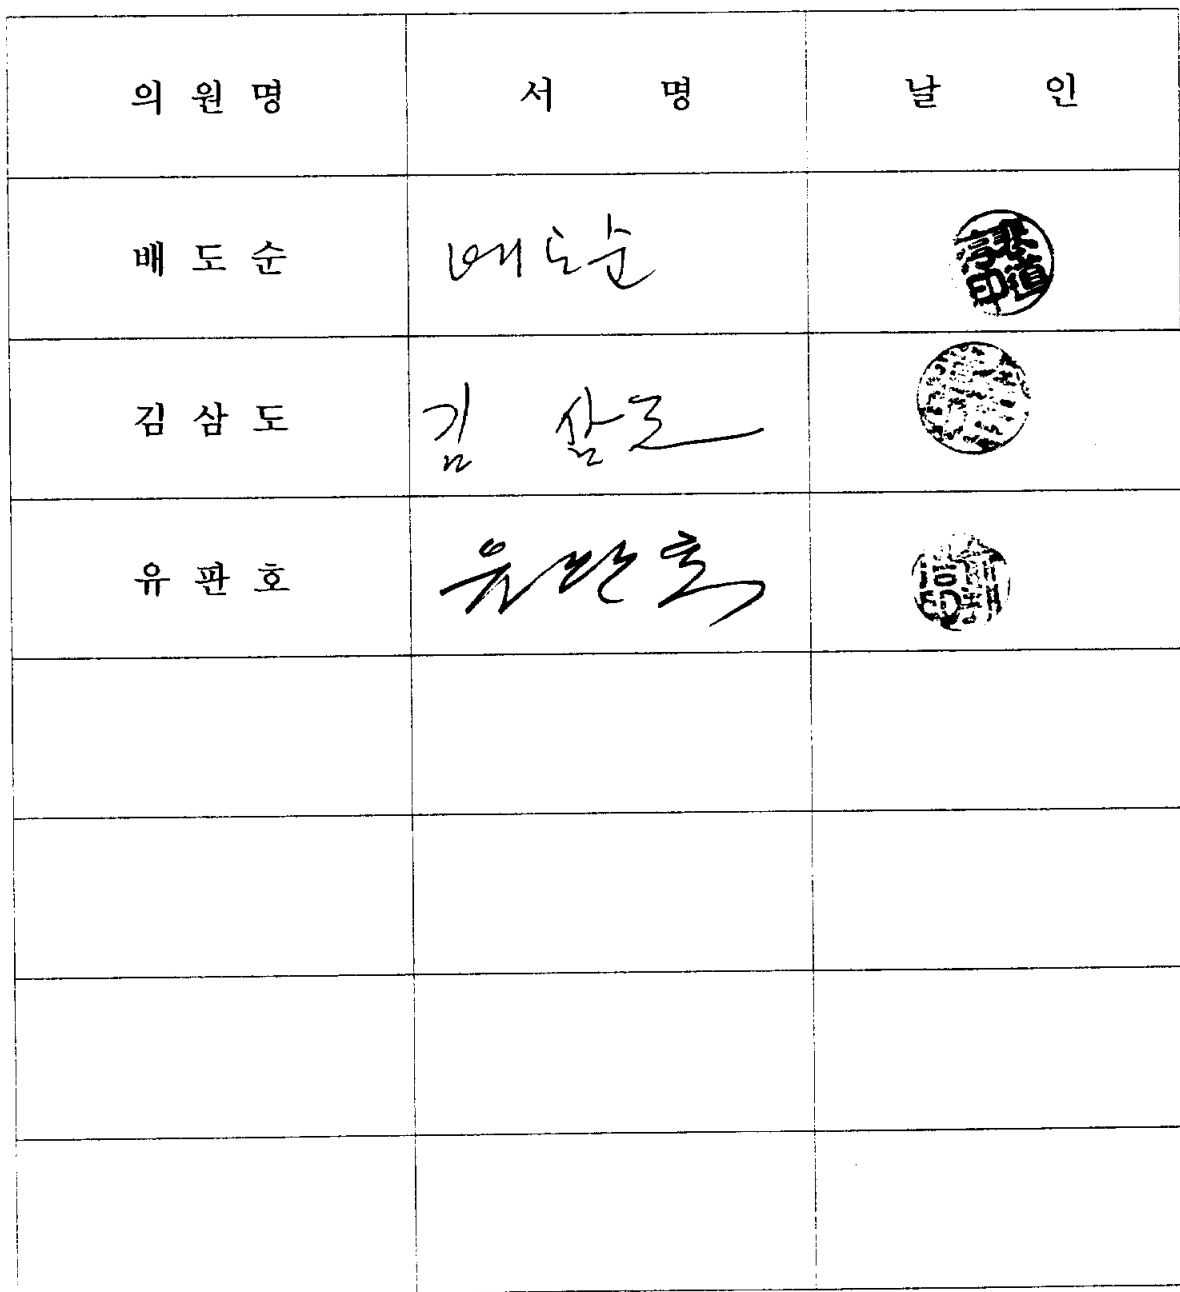 의 원 명 서 명 날 인
배 도 순 배도순
김 삼 도 김 삼도
유 판 호 유판호